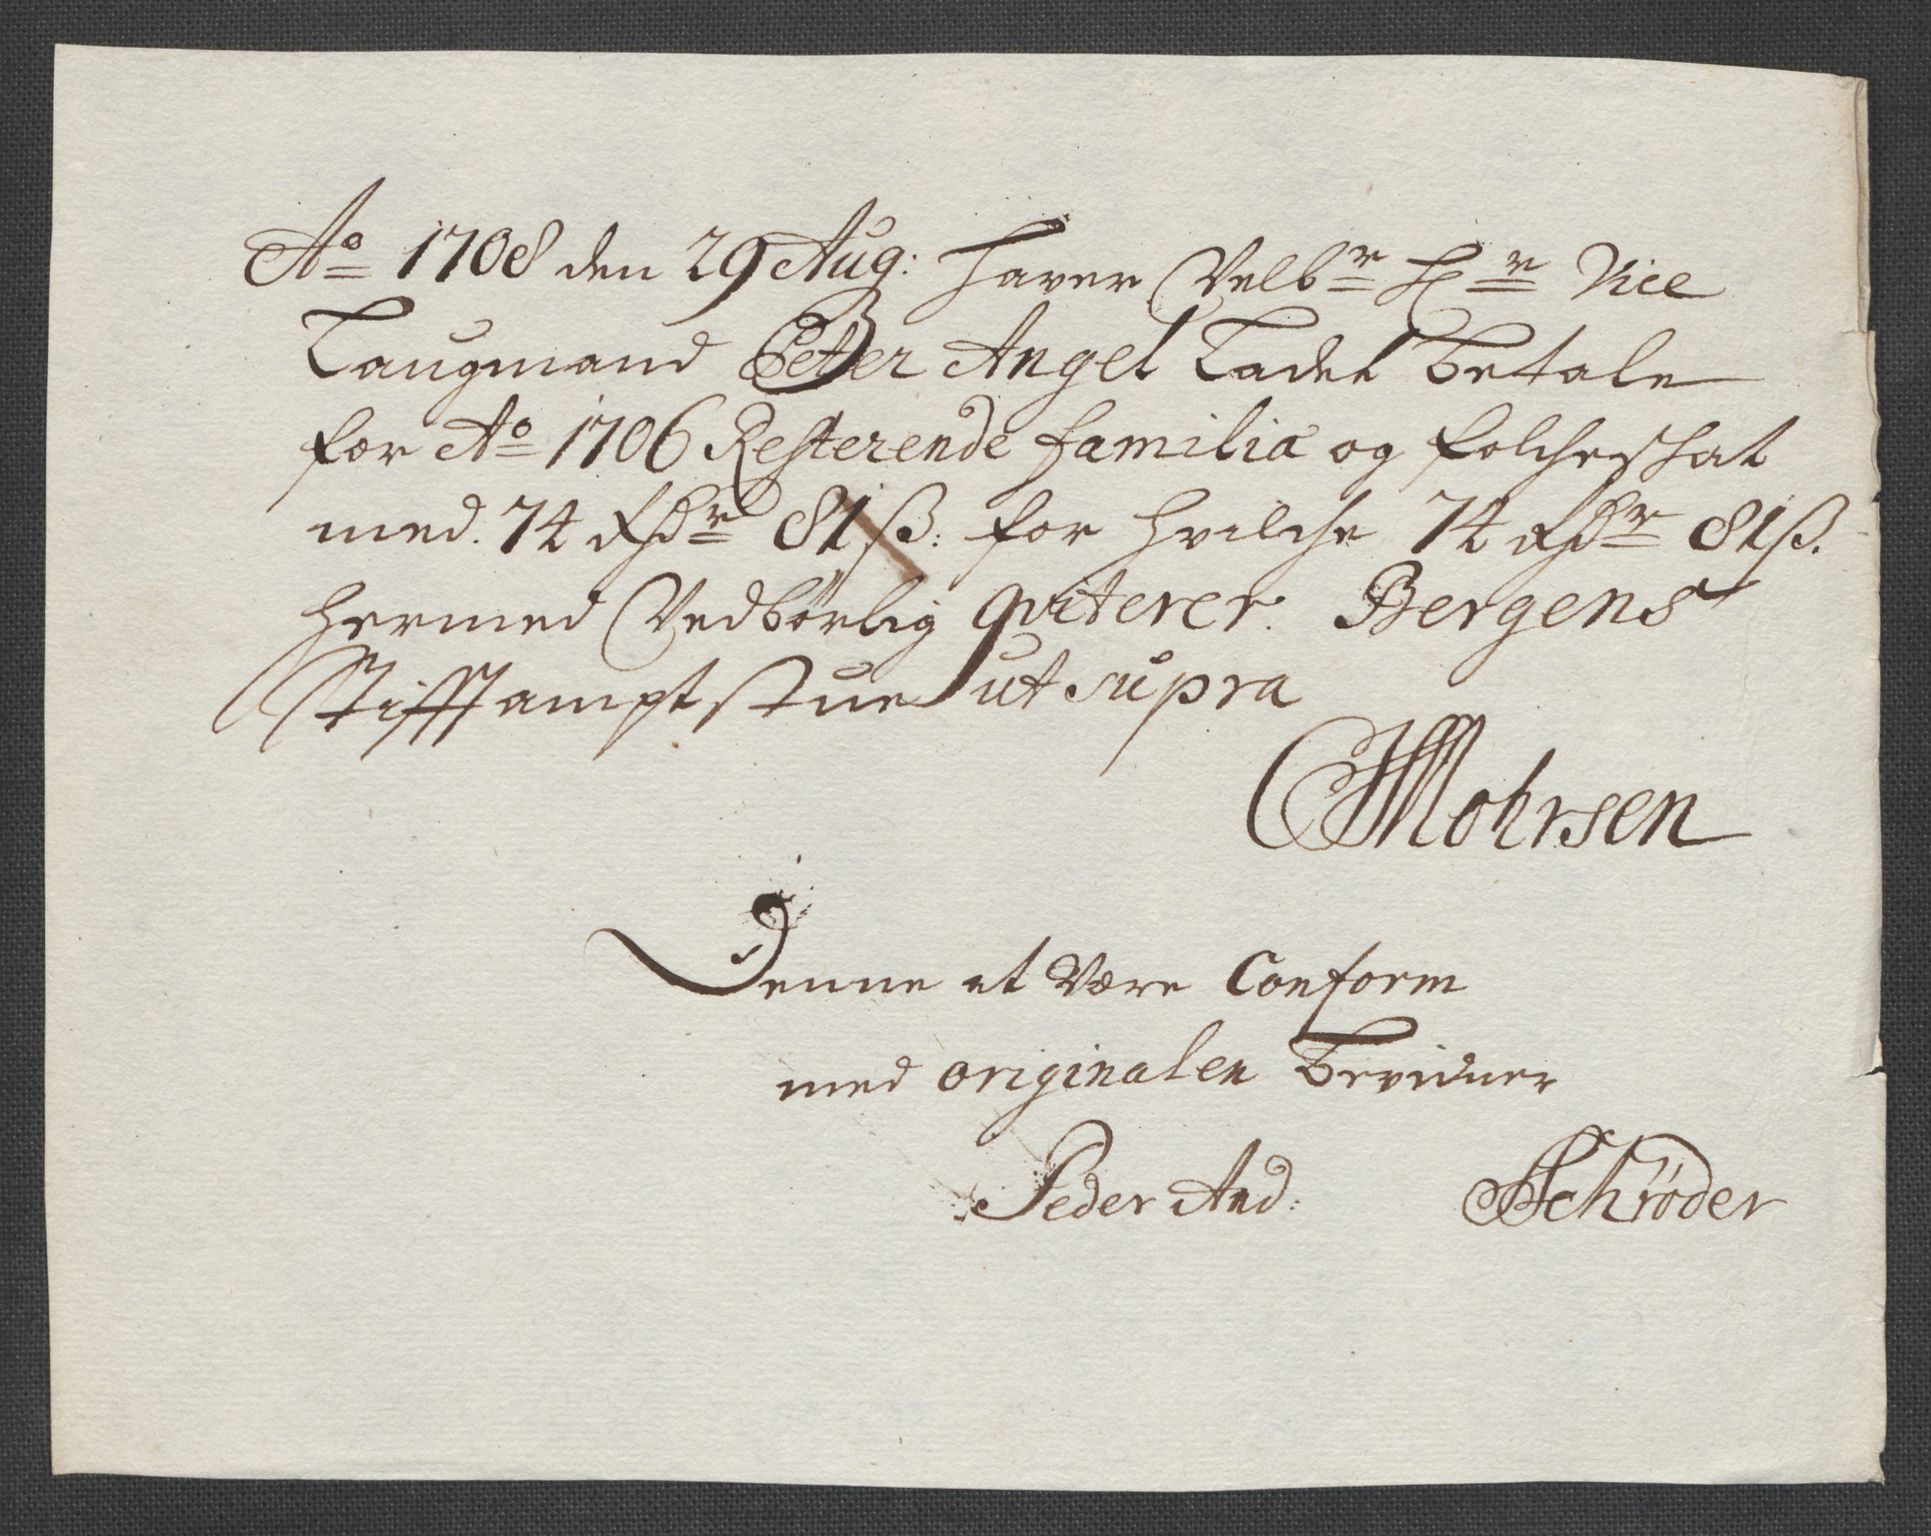 Ao 1708 den 29 Aug: haver Velbr Hr Vice
Laugmand Peter Angel Ladet betale
for Ao 1706 Resterende familia og folcheskat
med. 74 Rdr 81 ß: for hvilche 74 Rdr 81 ß.
hermed Vedbörlig qviterer. Bergens
Stifftampt stue ut supra
CMohrsen
Denne at være Conform
med originalen bevidner
Peder And: Schrøder